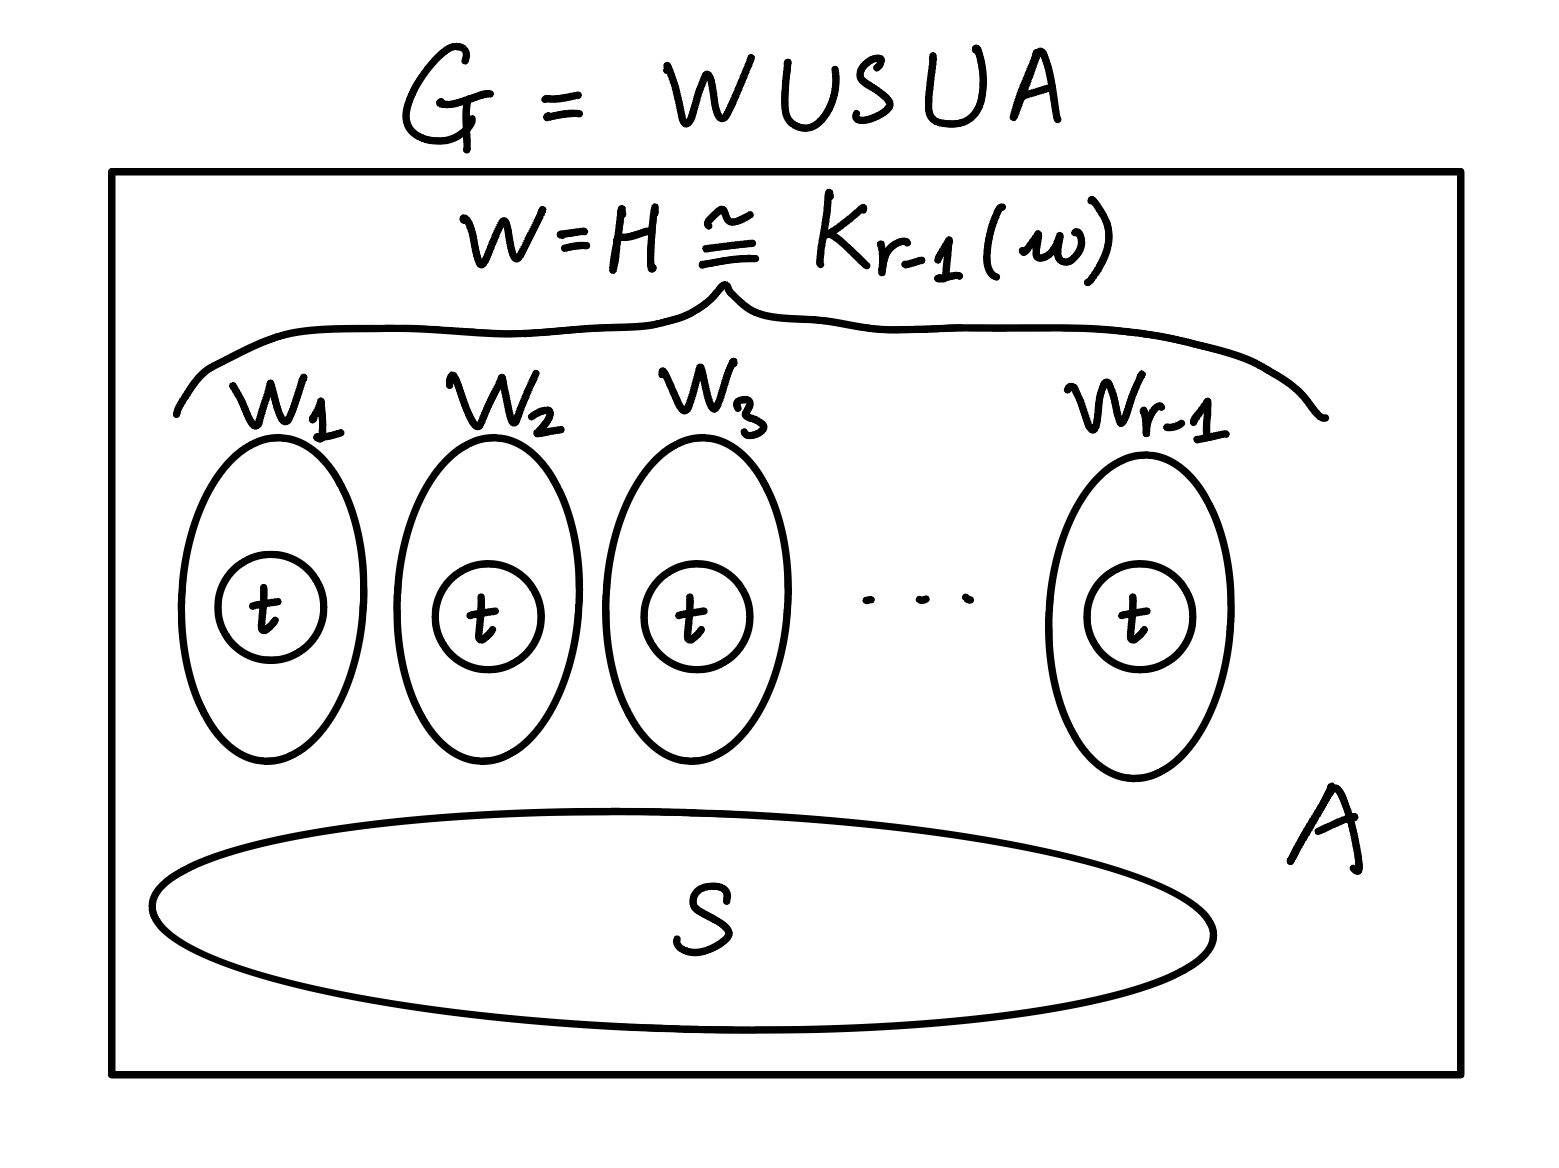 G = W U S U A
W = H ≅ K_{r-1}(w)
W_1 W_2 W_3 W_{r-1}
t t t ... t
A
S